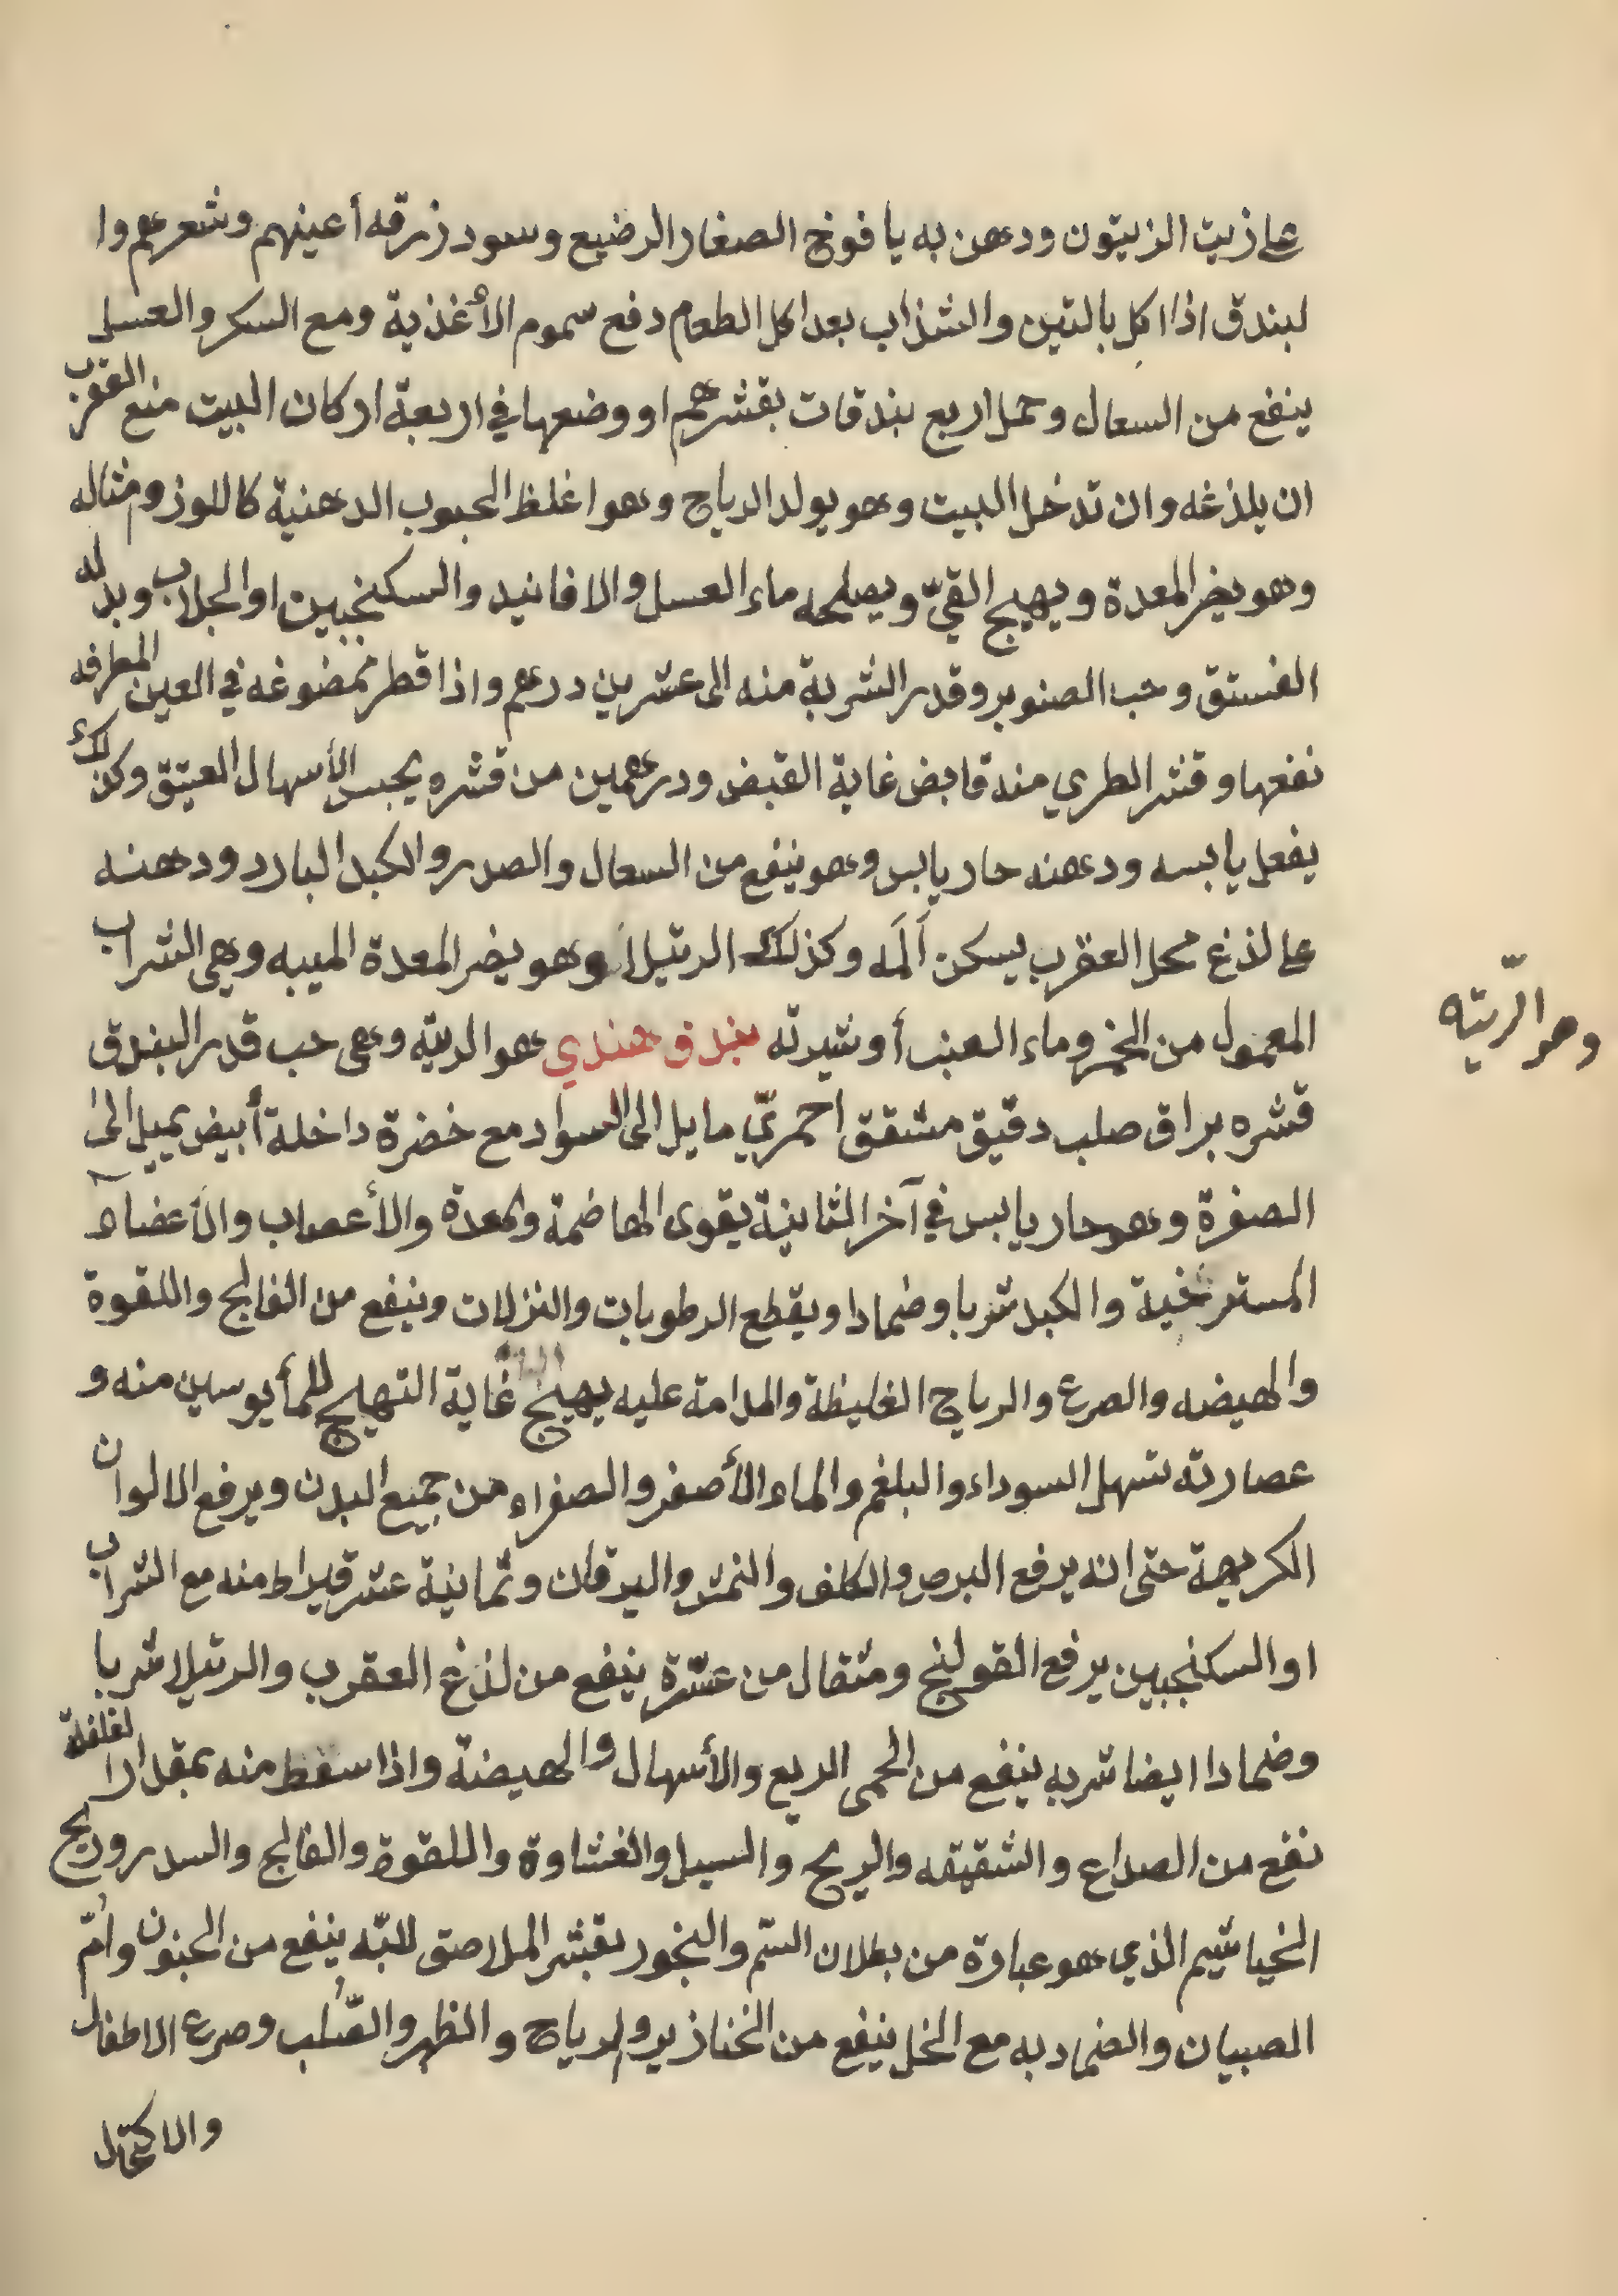 على زيت الزيتون ودهن به يافوخ الصغار الرضيع وسود زرقه أعينهم وشعرهم وا
لبندق اذا اكل بالتين والشذاب بعد اكل الطعام دفع سموم الأغذية ومع السكر والعسل
ينفع من السعال وحمل اربع بندقات بقشرهم او وضعها في اربعة اركان البيت منع العقرب
ان يلذغه وان تدخل البيت وهو يولد الرياح وهو اغلظ الحبوب الدهنية كاللوز ومثاله
وهو يضر المعدة ويهيج القيّ ويصلحه ماء العسل والافانيد والسكنجبين او الجلاب وبدله
الفستق وحب الصنوبر وقدر الشربة منه الى عشرين درهم واذا قطر ممضوغه في العين المطرفه
نفعها وقشر الطري منه قابض غاية القبض ودرهمين من قشره يحبس الأسهال العتيق وكذلك
يفعل يابسه ودهنه حار يابس وهو ينفع من السعال والصدر والكبد البارد ودهنه
على لذغ محل العقرب يسكن اَلَمه وكذلك الرتيلا وهو يضر المعدة الميبه وهي الشراب
المعمول من الخمر وماء العنب أو نثيرته بندق هندي هو الرته وهي حب قدر البندق
وهو الرّيته
قشره براق صلب دقيق مشقق احمريّ مايل الى السواد مع خضرة داخلة أبيض يميل الى
الصفرة وهو حار يابس في آخر الثانية يقوى الهاضمة والمعدة والأعصاب والأعضاء
المسترخية والكبد شربا وضمادا ويقطع الرطوبات والنزلات وينفع من الفالج واللقوة
والهيضه والصرع والرياح الغليظة والمدامة عليه يهيج غاية التهيج للمأيوسين منه و
عصارته تسهل السوداء والبلغم والماء الأصفر والصفراء من جميع البدن ويرفع الالوان
الكريهة حتى انه يرفع البرص والكلف والنمش واليرقان وثمانية عشر قيراط منه مع الشراب
او السكنجبين يرفع القولنج ومثقال من عشرة ينفع من لذغ العقرب والرتيلا شربا
وضمادا ايضا شربه ينفع من الحمى الربع والأسهال والهيضة واذا سعط منه بمقدار الفلفلة
نفع من الصداع والشقيقه والريح والسبل والغشاوة واللقوة والفالج والسدر وريح
الخياشيم الذي هو عبارة من بطلان الشم والبخور بقشر الملاصق للبّه ينفع من الجنون واُمّ
الصبيان والضماد به مع الخل ينفع من الخنازير والرياح والظهر والصُّلب وصرع الاطفال
والاكتحال